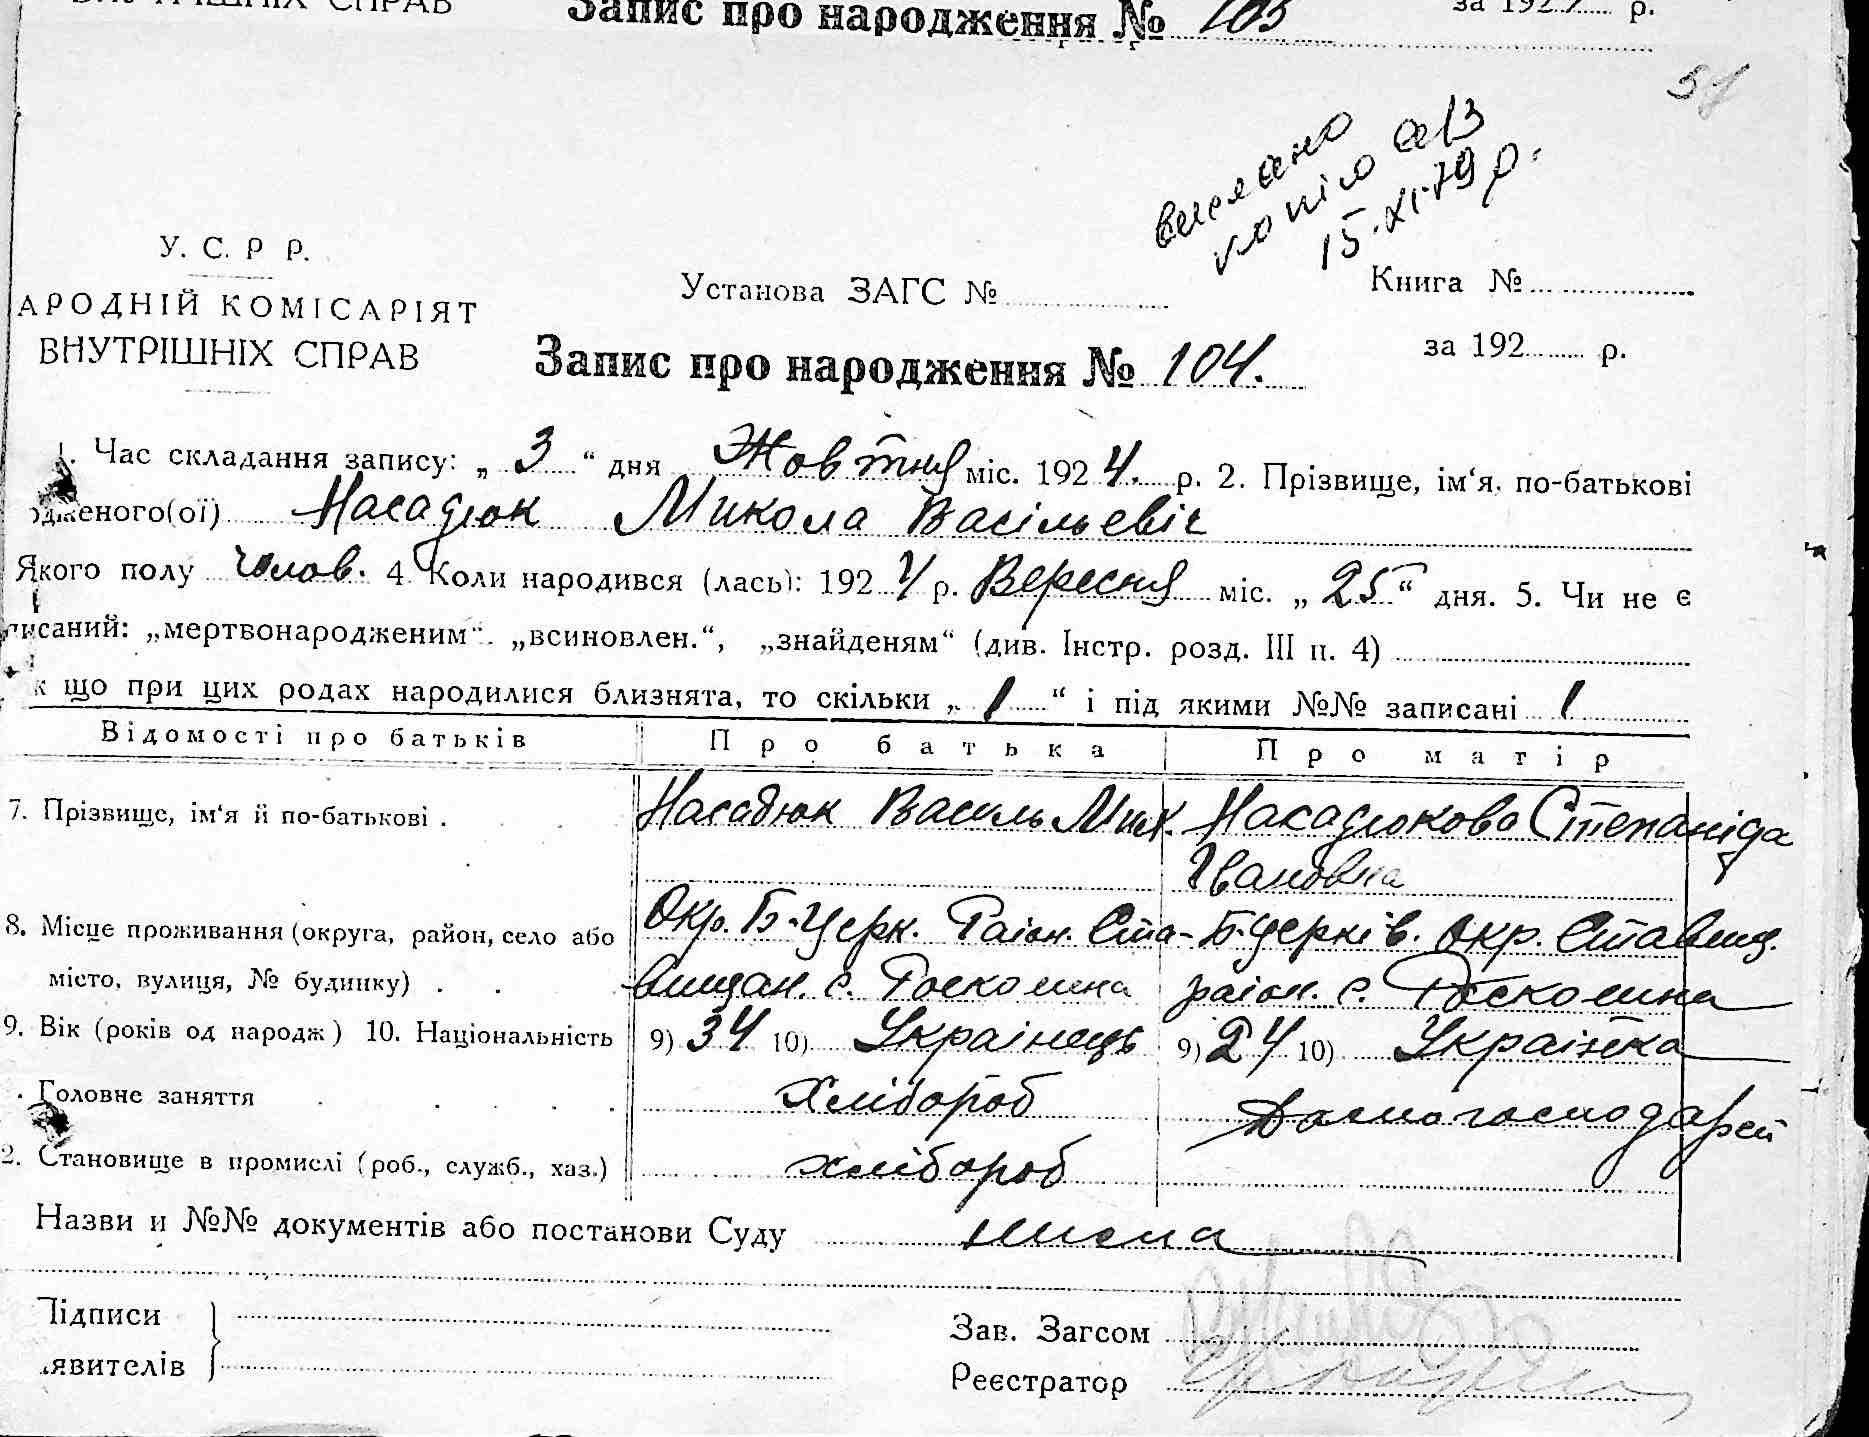 ВНУТРІШНІХ СПРАВ
Запис про народження № 103
за 192 р.
51
вислано
копію а/з
15.XI.79 р.
У. С. Р Р.
АРОДНІЙ КОМІСАРІЯТ
ВНУТРІШНІХ СПРАВ
Установа ЗАГС №
Книга №
за 192 р.
Запис про народження № 104.
1. Час складання запису: „ 3 “ дня Жовтня міс. 192 4. р. 2. Прізвище, ім‘я, по-батькові
одженого(ої) Насадюк Микола Васільевіч
Якого полу чолов. 4 Коли народився (лась): 192 4 р. Вересня міс. „ 25 “ дня. 5. Чи не є
писаний: „мертвонародженим“. „всиновлен.“, „знайденям“ (див. Інстр. розд. III п. 4)
к що при цих родах народилися близнята, то скільки „ 1 “ і під якими №№ записані 1
Відомості про батьків Про батька Про матір
7. Прізвище, ім‘я й по-батькові . Насадюк Василь Мик. Насадюкова Степаніда
Івановна
8. Місце проживання (округа, район, село або Окр. Б-Церк. Раіон. Ста- Б-Церків. окр. Ставищ.
місто, вулиця, № будинку) . . вищан. с. Росколина раіон. с. Росколина
9. Вік (років од народж) 10. Національність 9) 34 10) Украінець 9) 24 10) Украінка
. Головне заняття . . . . . Хлібороб Домогосподарей
2. Становище в промислі (роб., служб., хаз.) хлібороб
Назви и №№ документів або постанови Суду нисма
Підписи
явителів
Зав. Загсом
Реєстратор